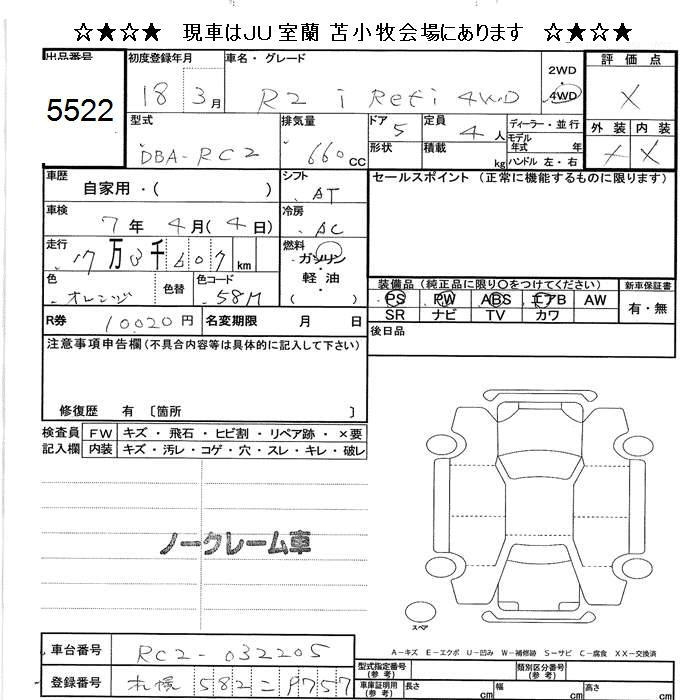 ☆★☆★　現車はJU室蘭　苫小牧会場にあります　☆★☆★
出品番号
5522
初度登録年月
18 3月
車名・グレード
R2 i Refi 4WD
2WD
・
4WD
評価点
X
型式
DBA-RC2
排気量
660 CC
ドア 5
形状
定員 4人
積載 kg
ディーラー・並行
モデル
年式 年
ハンドル 左・右
外装 内装
X X
車歴
自家用・( )
シフト
AT
セールスポイント（正常に機能するものに限ります）
車検
7年4月(4日)
冷房
AC
走行
17万3千607km
燃料
ガソリン
・
軽油
( )
色
オレンジ
色替
色コード
58M
装備品（純正品に限り○をつけてください）
新車保証書
PS PW ABS エアB AW
SR ナビ TV カワ
有・無
R券 10020円
名変期限 月 日
後日品
注意事項申告欄(不具合内容等は具体的に記入して下さい)
修復歴 有 〔箇所 〕
検査員
記入欄
FW キズ・飛石・ヒビ割・リペア跡・×要
内装 キズ・汚レ・コゲ・穴・スレ・キレ・破レ
ノークレーム車
スペア
A－キズ E－エクボ U－凹み W－補修跡 S－サビ C－腐食 XX－交換済
車台番号 RC2-032205
登録番号 札幌 582 こ 9757
型式指定番号
(参考)
類別区分番号
(参考)
車庫証明用
(参考)
長さ cm
幅 cm
高さ cm